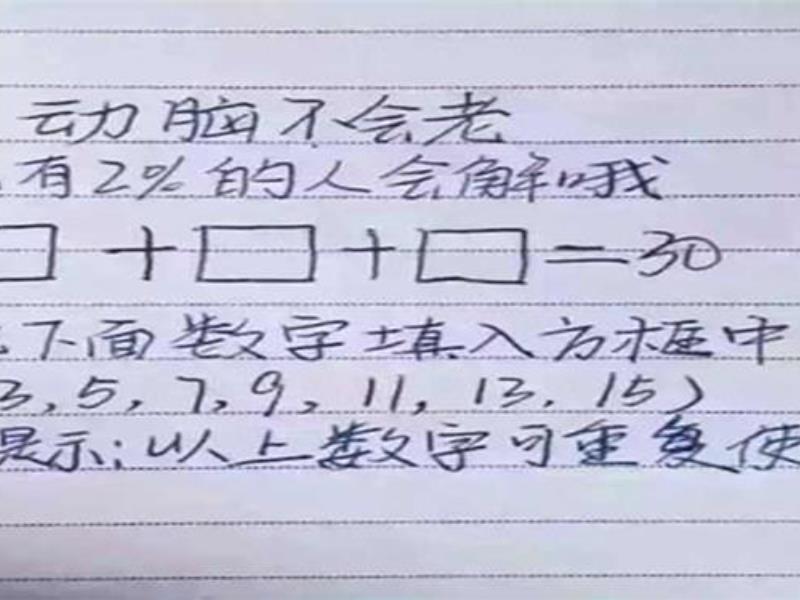 动脑不会老
有2%的人会解哦
□+□+□=30
下面数字填入方框中
3,5,7,9,11,13,15)
提示:以上数字可重复使